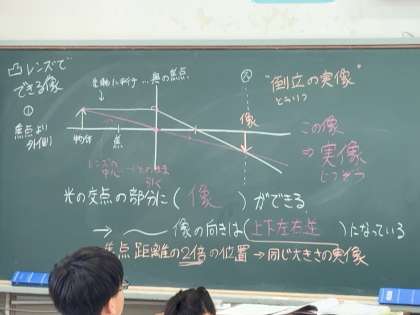 凸レンズで
できる像
①
焦点より
外側
主軸に平行 … 奥の焦点
物体
焦
レンズの
中心
像
"倒立の実像"
とうりつ
この像
⇒ 実像
じつぞう
光の交点の部分に( 像 )ができる
→ 〜 像の向きは(上下左右逆)になっている
焦点距離の2倍の位置 → 同じ大きさの実像